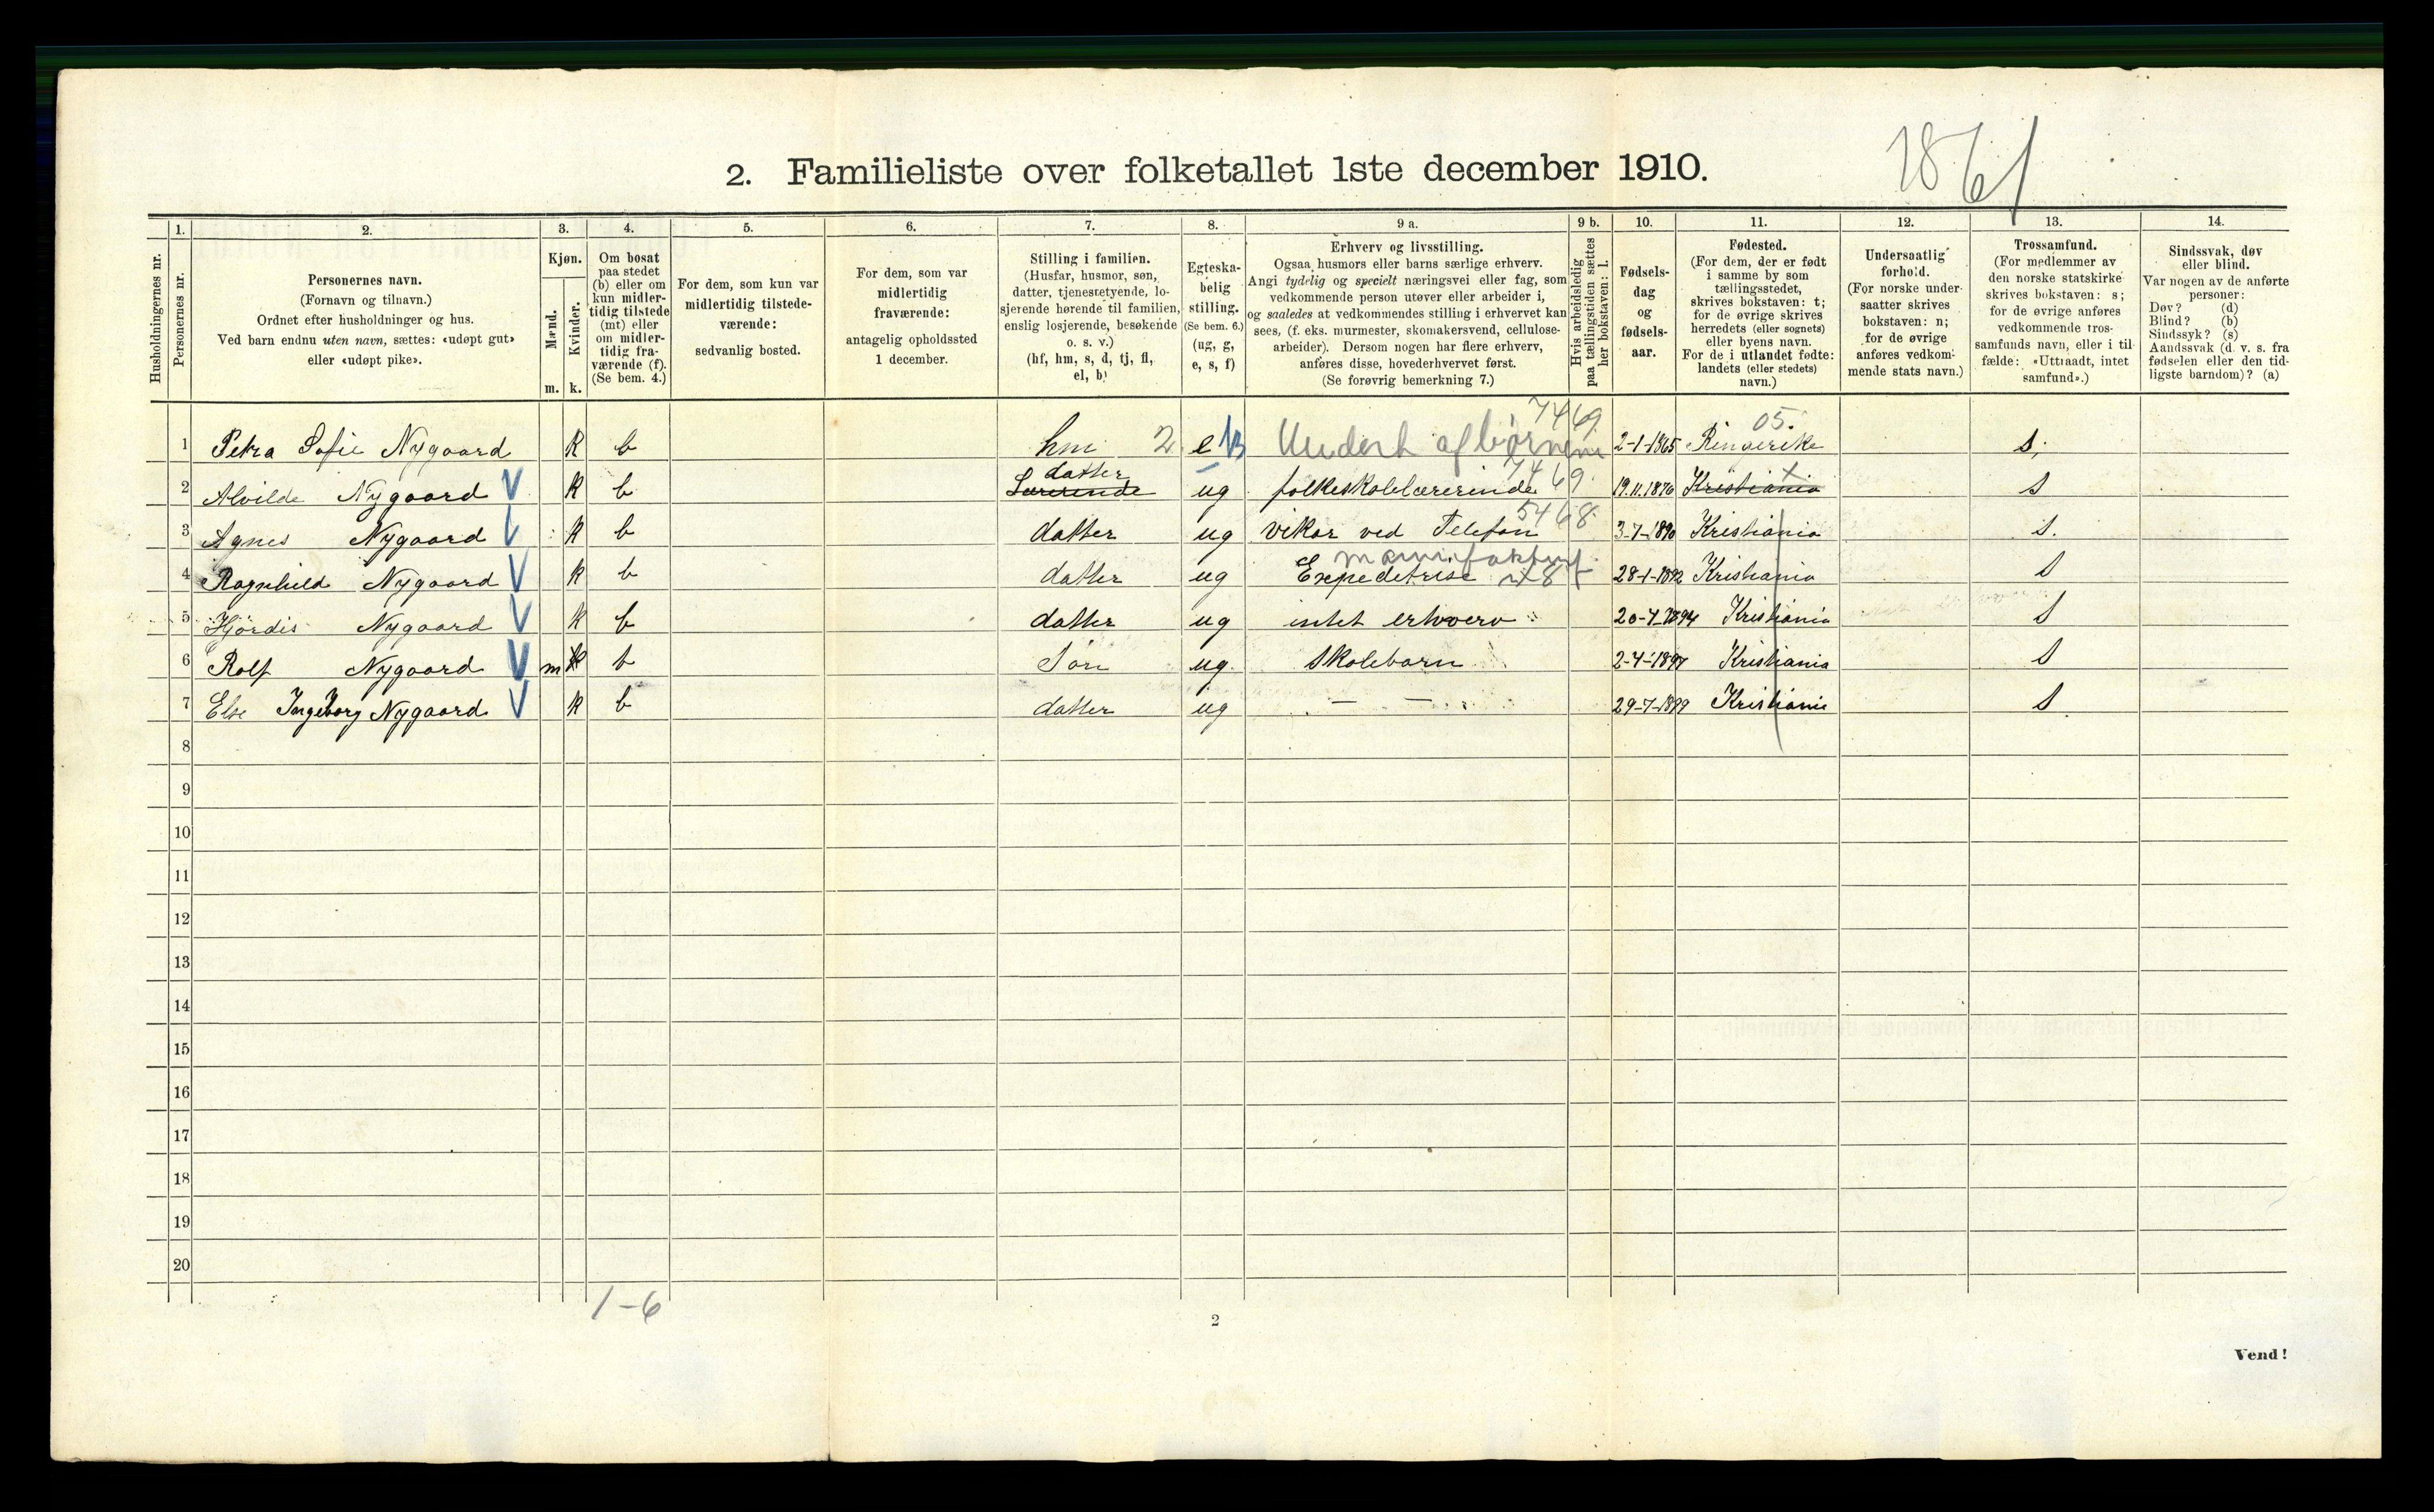 1861
2. Familieliste over folketallet 1ste december 1910.
1. 2. 3. 4. 5. 6. 7. 8. 9 a. 9 b. 10. 11. 12. 13. 14.
Husholdningernes nr.
Personernes nr.
Personernes navn.
(Fornavn og tilnavn.)
Ordnet efter husholdninger og hus.
Ved barn endnu uten navn, sættes: «udøpt gut»
eller «udøpt pike».
Kjøn.
Mænd.
m.
Kvinder.
k.
Om bosat
paa stedet
(b) eller om
kun midler-
tidig tilstede
(mt) eller
om midler-
tidig fra-
værende (f).
(Se bem. 4.)
For dem, som kun var
midlertidig tilstede-
værende:
sedvanlig bosted.
For dem, som var
midlertidig
fraværende:
antagelig opholdssted
1 december.
Stilling i familien.
(Husfar, husmor, søn,
datter, tjenestetyende, lo-
sjerende hørende til familien,
enslig losjerende, besøkende
o. s. v.)
(hf, hm, s, d, tj, fl,
el, b)
Egteska-
belig
stilling.
(Se bem. 6.)
(ug, g,
e, s, f)
Erhverv og livsstilling.
Ogsaa husmors eller barns særlige erhverv.
Angi tydelig og specielt næringsvei eller fag, som
vedkommende person utøver eller arbeider i,
og saaledes at vedkommendes stilling i erhvervet kan
sees, (f. eks. murmester, skomakersvend, cellulose-
arbeider). Dersom nogen har flere erhverv,
anføres disse, hovederhvervet først.
(Se forøvrig bemerkning 7.)
Hvis arbeidsledig
paa tællingstiden sættes
her bokstaven: l.
Fødsels-
dag
og
fødsels-
aar.
Fødested.
(For dem, der er født
i samme by som
tællingsstedet,
skrives bokstaven: t;
for de øvrige skrives
herredets (eller sognets)
eller byens navn.
For de i utlandet fødte:
landets (eller stedets)
navn.)
Undersaatlig
forhold.
(For norske under-
saatter skrives
bokstaven: n;
for de øvrige
anføres vedkom-
mende stats navn.)
Trossamfund.
(For medlemmer av
den norske statskirke
skrives bokstaven: s;
for de øvrige anføres
vedkommende tros-
samfunds navn, eller i til-
fælde: «Uttraadt, intet
samfund».)
Sindssvak, døv
eller blind.
Var nogen av de anførte
personer:
Døv? (d)
Blind? (b)
Sindssyk? (s)
Aandssvak (d. v. s. fra
fødselen eller den tid-
ligste barndom)? (a)
7469 05.
1 Petra Sofie Nygaard k b hm 2 e Underh af børnene 2-1-1865 Ringerike s.
datter 7469.
2 Alvilde Nygaard V k b Lærerinde ug folkeskolelærerinde 19.11.1876 Kristiania x s
5468.
3 Agnes Nygaard V k b datter ug vikar ved Telefon 3-7-1890 Kristiania s.
manufakturf.
4 Ragnhild Nygaard V k b datter ug Expeditrise 28-1-1892 Kristiania s
5 Hjördis Nygaard V k b datter ug intet erhverv 20-7-1894 Kristiania s
6 Rolf Nygaard V m k b Søn ug. skolebarn 2-4-1897 Kristiania s
7 Else Ingeborg Nygaard V k b datter ug — — 29-7-1899 Kristiania s.
8
9
10
11
12
13
14
15
16
17
18
19
20
1-6
2
Vend!